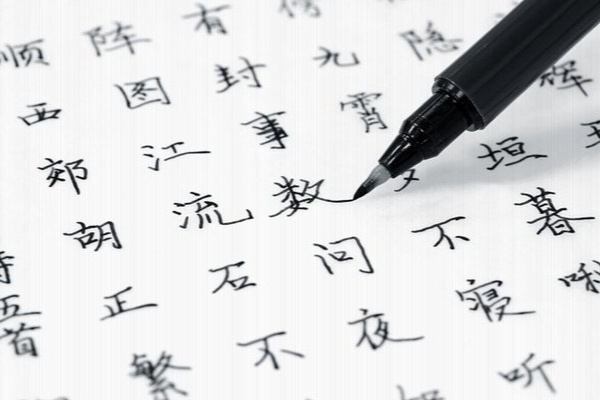 辉
隐垣暮啾
傍九霄多不寝听
有封事数问夜如
阵图江流石不
顺西郊胡正繁
五首